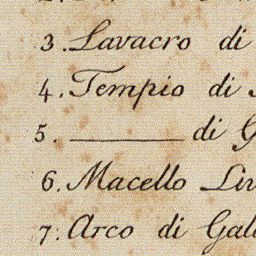 3. Lavacro di
4. Tempio di
5. ______ di
6. Macello
7. Arco di